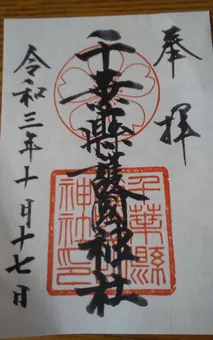 奉拝
千葉縣護國神社
令和三年十月十七日
千葉縣護國神社印